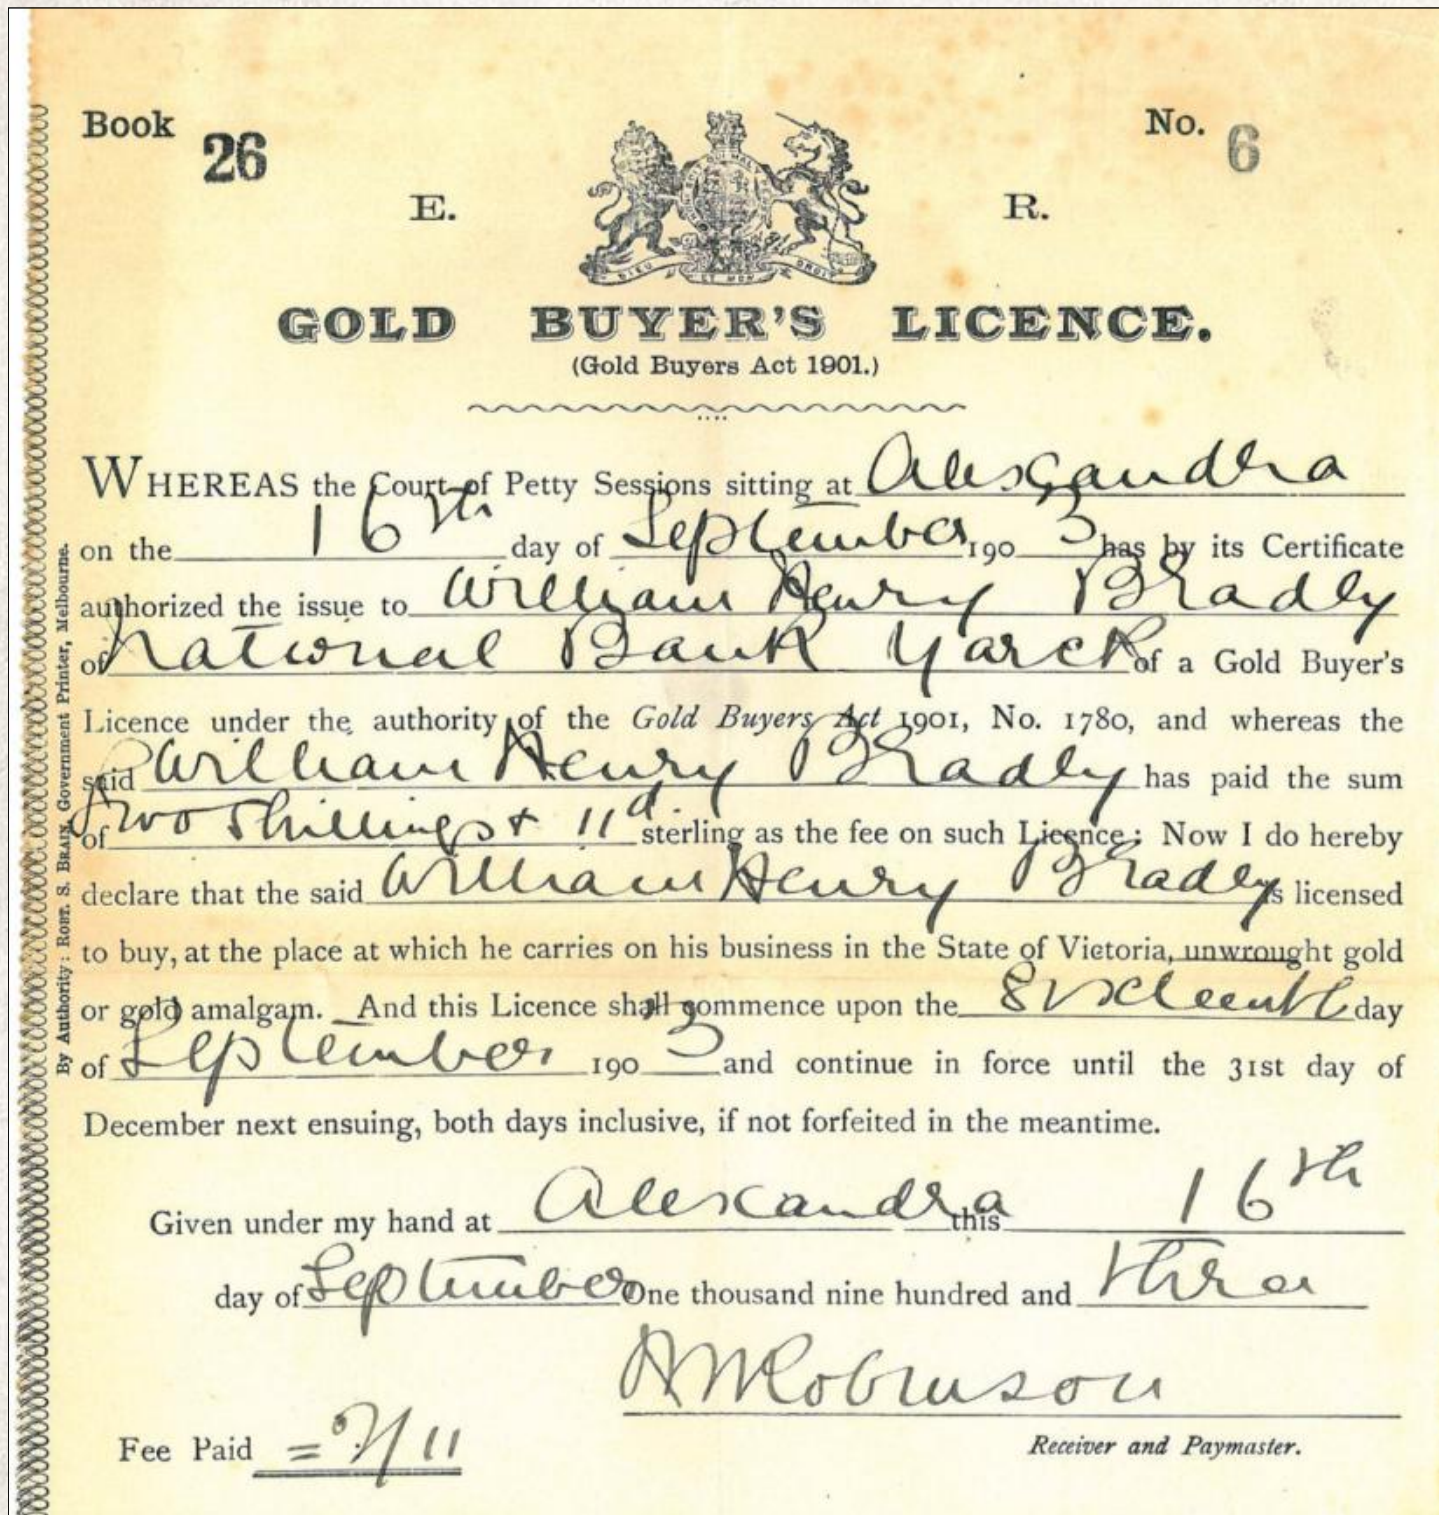 Book 26
No. 6
E. R.
DIEU ET MON DROIT
GOLD BUYER'S LICENCE.
(Gold Buyers Act 1901.)
WHEREAS the Court of Petty Sessions sitting at Alexandra
on the 16th day of September 1903 has by its Certificate
authorized the issue to William Henry Bradly
of National Bank Yarck of a Gold Buyer's
Licence under the authority of the Gold Buyers Act 1901, No. 1780, and whereas the
said William Henry Bradly has paid the sum
of Two Shillings & 11d sterling as the fee on such Licence: Now I do hereby
declare that the said William Henry Bradly is licensed
to buy, at the place at which he carries on his business in the State of Victoria, unwrought gold
or gold amalgam. And this Licence shall commence upon the Sixteenth day
of September 1903 and continue in force until the 31st day of
December next ensuing, both days inclusive, if not forfeited in the meantime.
Given under my hand at Alexandra this 16th
day of September One thousand nine hundred and three
Robinson
Receiver and Paymaster.
Fee Paid = 2/11
By Authority: ROBT. S. BRAIN, Government Printer, Melbourne.